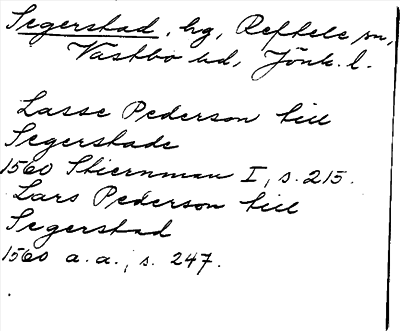 Segerstad, hg, Reftele sn,
Västbo hd, Jönk. l.
Lasse Pederson till
Segerstade
1560 Stiernman I, s. 215.
Lars Pederson till
Segerstad
1560 a.a., s. 247.